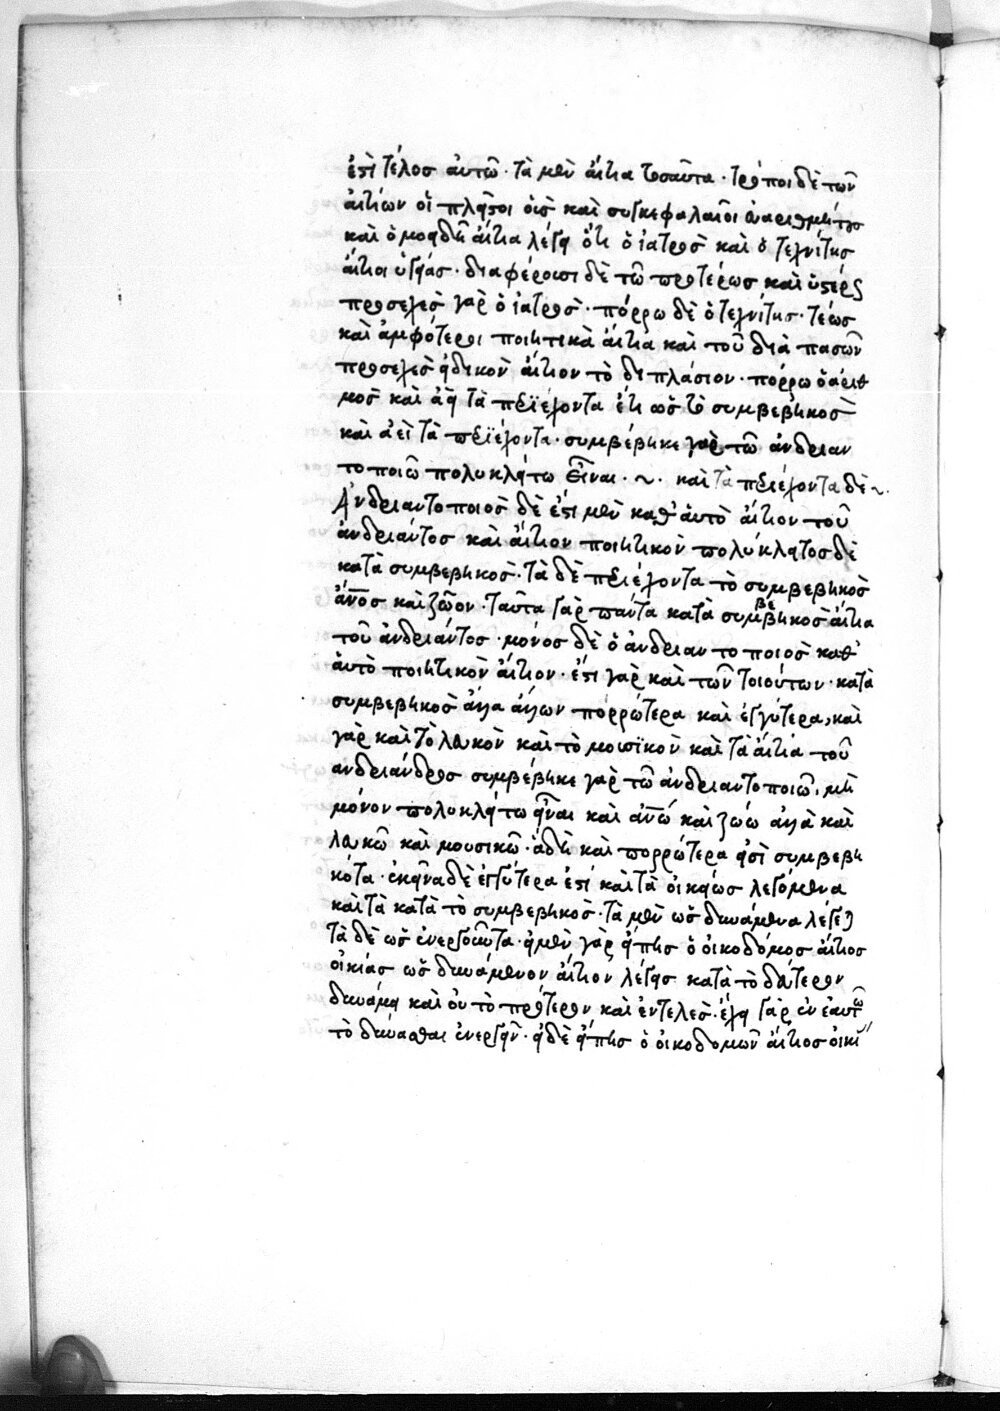 ἐστὶ τέλοσ ἀυτῶ · τὰ μὲν ἄιτια τοσαῦτα · τρόποι δὲ τῶν
ἀιτίων οἱ πλεῖστοι καὶ συγκεφαλαιοι
καὶ ὁμοειδῆ ἄιτια λέγει ὅτι ὁ ἰατρὸσ καὶ ὁ τεχνίτησ
ἄιτιοι ὑγείασ · διαφέρουσι δὲ τῶ προτέρωσ καὶ ὑστέρωσ
προσεχὲσ γὰρ ὁ ἰατρὸσ · πόρρω δὲ ὁ τεχνίτησ · τέωσ
καὶ ἀμφότεροι ποιητικὰ ἄιτια καὶ τοῦ διὰ πασῶν
προσεχὲσ εἰδικὸν ἄιτιον τὸ διπλάσιον · πόρρω ὁ ἀριθ
μὸσ καὶ ἀεὶ τὰ περιέχοντα ἔτι ὡσ τὸ συμβεβηκὸσ
καὶ ἀεὶ τὰ περιέχοντα · συμβέβηκε γὰρ τῶ ἀνδριαν
τοποιῶ πολυκλείτω εἶναι · ~ · καὶ τὰ περιέχοντα δὲ ~ ·
Ἀνδριαντοποιὸσ δὲ ἐστι μὲν καθ' ἁυτὸ ἄιτιον τοῦ
ἀνδριάντοσ καὶ ἄιτιον ποιητικὸν πολύκλειτοσ δὲ
κατὰ συμβεβηκὸσ · τὰ δὲ περιέχοντα τὸ συμβεβηκὸσ
ἄνοσ καὶ ζῶον · ταῦτα γὰρ πάντα κατὰ συμβεβηκὸσ ἄιτια
τοῦ ἀνδριάντοσ · μόνοσ δὲ ὁ ἀνδριαντοποιὸσ καθ'
ἁυτὸ ποιητικὸν ἄιτιον · ἔστι γὰρ καὶ τῶν τοιούτων · κατὰ
συμβεβηκὸσ ἄλλα ἄλλων πορρώτερα καὶ ἐγγύτερα, καὶ
γὰρ καὶ τὸ λευκὸν καὶ τὸ μουσϊκὸν καὶ τὰ ἄιτια τοῦ
ἀνδριάντοσ συμβέβηκε γὰρ τῶ ἀνδριαντοποιῶ, μὴ
μόνον πολυκλείτω εἶναι καὶ ἀνω καὶ ζώω ἀλλὰ καὶ
λευκῶ καὶ μουσικῶ · ἃ δὴ καὶ πορρώτερα εἰσὶ συμβεβη
κότα · ἐκεῖνα δὲ ἐγγύτερα ἐστὶ καὶ τὰ οἰκείωσ λεγόμενα
καὶ τὰ κατὰ τὸ συμβεβηκὸσ · τὰ μὲν ὡσ δυνάμενα λέγεται
τὰ δὲ ὡσ ἐνεργοῦντα · εἰ μὲν γὰρ εἴποισ ὁ οἰκοδόμοσ ἄιτιοσ
οἰκίασ ὡσ δυνάμενον ἄιτιον λέγεισ κατὰ τὸ δεύτερον
δυνάμει καὶ οὐ τὸ πρότερον καὶ ἐντελὲσ · ἔχει γὰρ ἐν ἑαυτῶ
τὸ δύνασθαι ἐνεργεῖν · εἰ δὲ εἴποισ ὁ οἰκοδομῶν ἄιτιοσ οἰκί